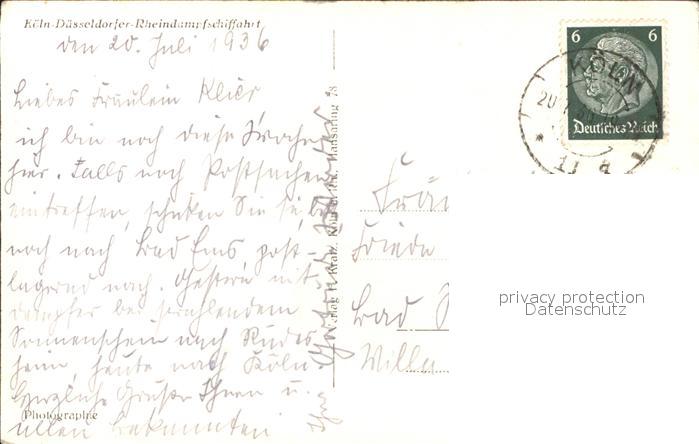 Köln-Düsseldorfer-Rheindampfschiffahrt
den 20. Juli 1936
Liebes Fräulein Klier
ich bin noch diese Woche
hier. Falls noch Postsachen
eintreffen, schicken Sie sie bitte
noch nach Bad Ems, post-
lagernd nach. Gestern mit
Dampfer bei strahlendem
Sonnenschein nach Rüdes-
heim, heute nach Köln.
Herzliche Grüße Ihnen u.
allen Bekannten
Ihre
Photographie
Verlag
Hansaring 78
6 6
Deutsches Reich
KÖLN
20
Fräu
Friede
Bad
Villa
privacy protection
Datenschutz